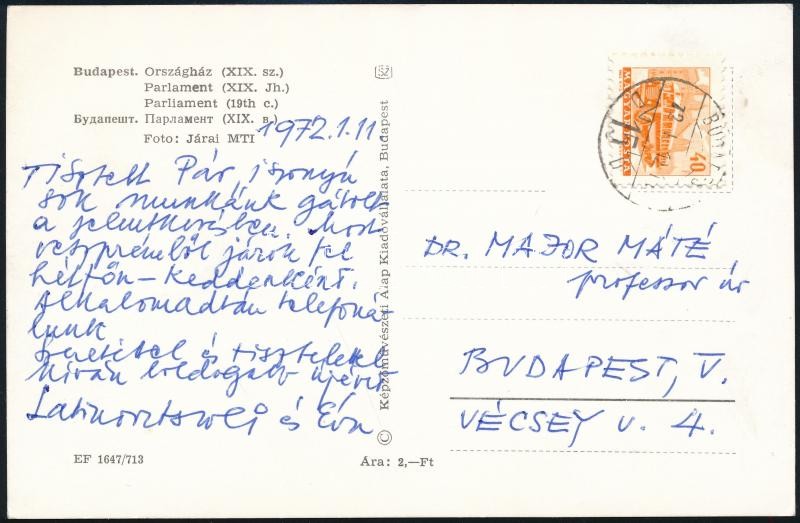 Budapest. Országház (XIX. sz.)
Parlament (XIX. Jh.)
Parliament (19th c.)
Будапешт. Парламент (XIX. в.)
Foto: Járai MTI
1972.1.11
Tisztelt Pár, iszonyú
sok munkánk gátolt
a jelentkezésben. Most
veszprémből járok fel
hétfőn-keddenként.
Alkalomadtán telefoná-
lunk
Szeretettel és tisztelettel
kíván boldogabb újévet
Latinovits Zoli és Éva
EF 1647/713
Ára: 2,—Ft
© Képzőművészeti Alap Kiadóvállalata, Budapest
MAGYAR POSTA
40
BUDAPEST
72
15
DR. MAJOR MÁTÉ
professor úr
BUDAPEST, V.
VÉCSEY u. 4.